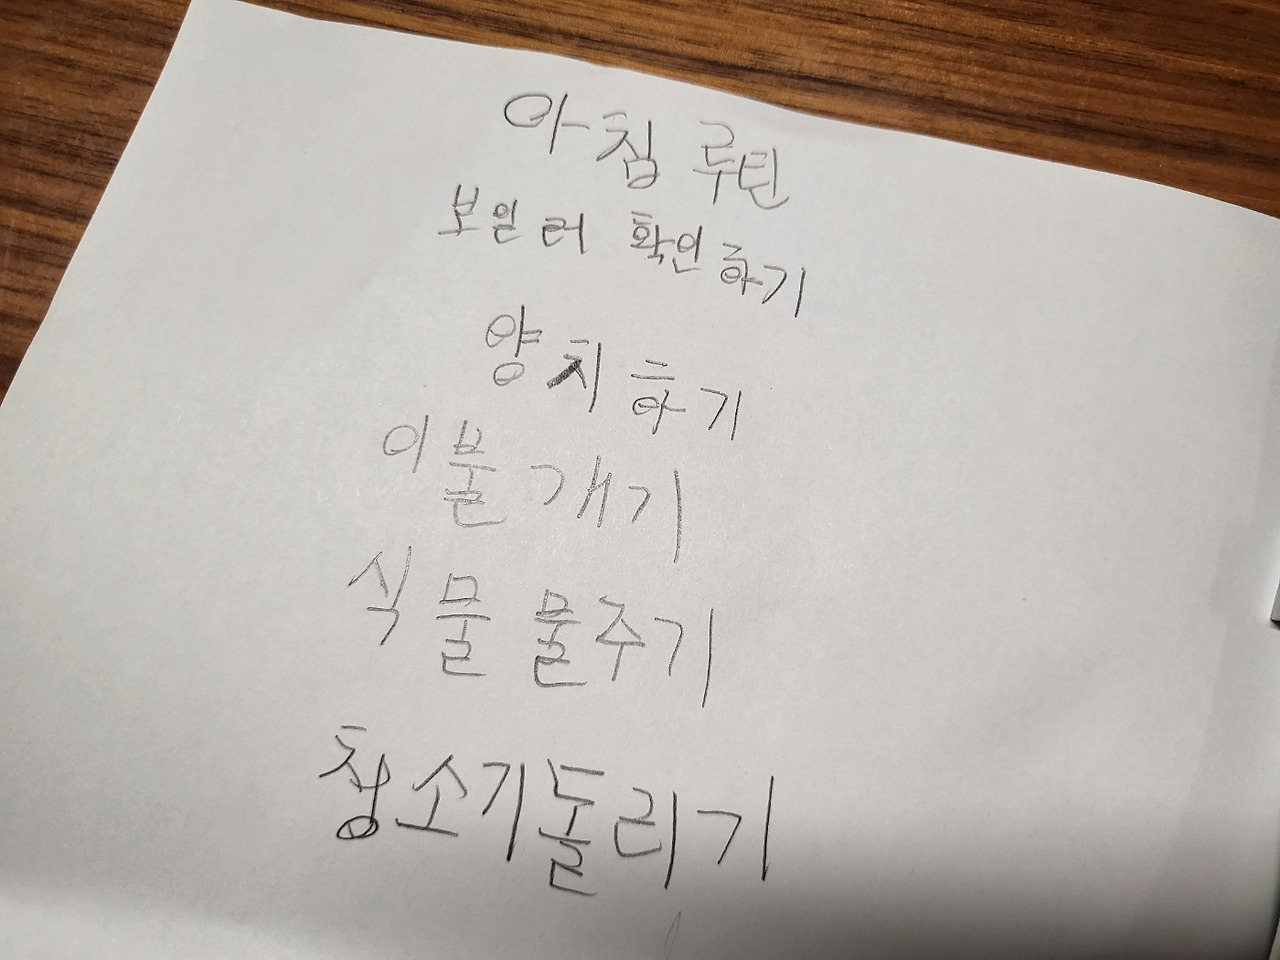 아침 루틴
보일러 확인하기
양치하기
이불개기
식물 물주기
청소기돌리기